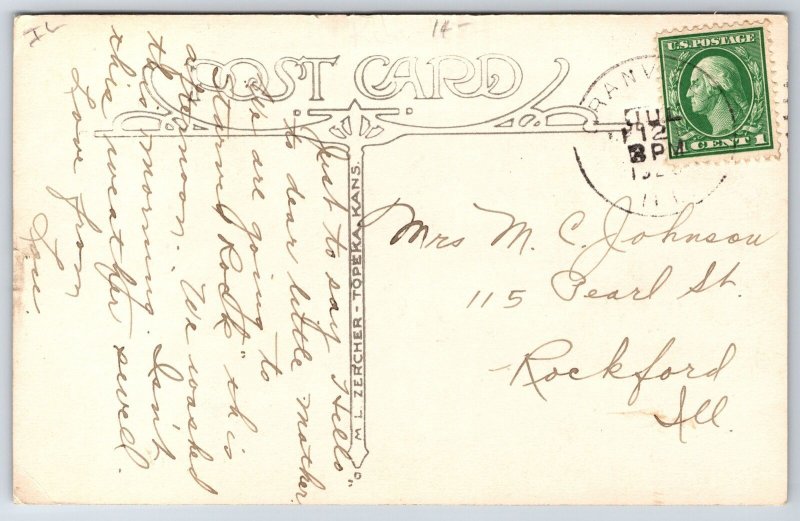 IL
14-
POST CARD
U.S. POSTAGE
1 CENT 1
GRANV
JUL
12
PM
ILL
Just to say "Hello"
to dear little mother
We are going to
"Starved Rock" this
afternoon. We washed
this morning. Isn't
this weather swell.
Love from
M. L. ZERCHER - TOPEKA, KANS.
Mrs M. C. Johnson
115 Pearl St.
Rockford
Ill.